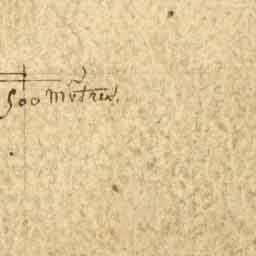 500 Mẽtres.